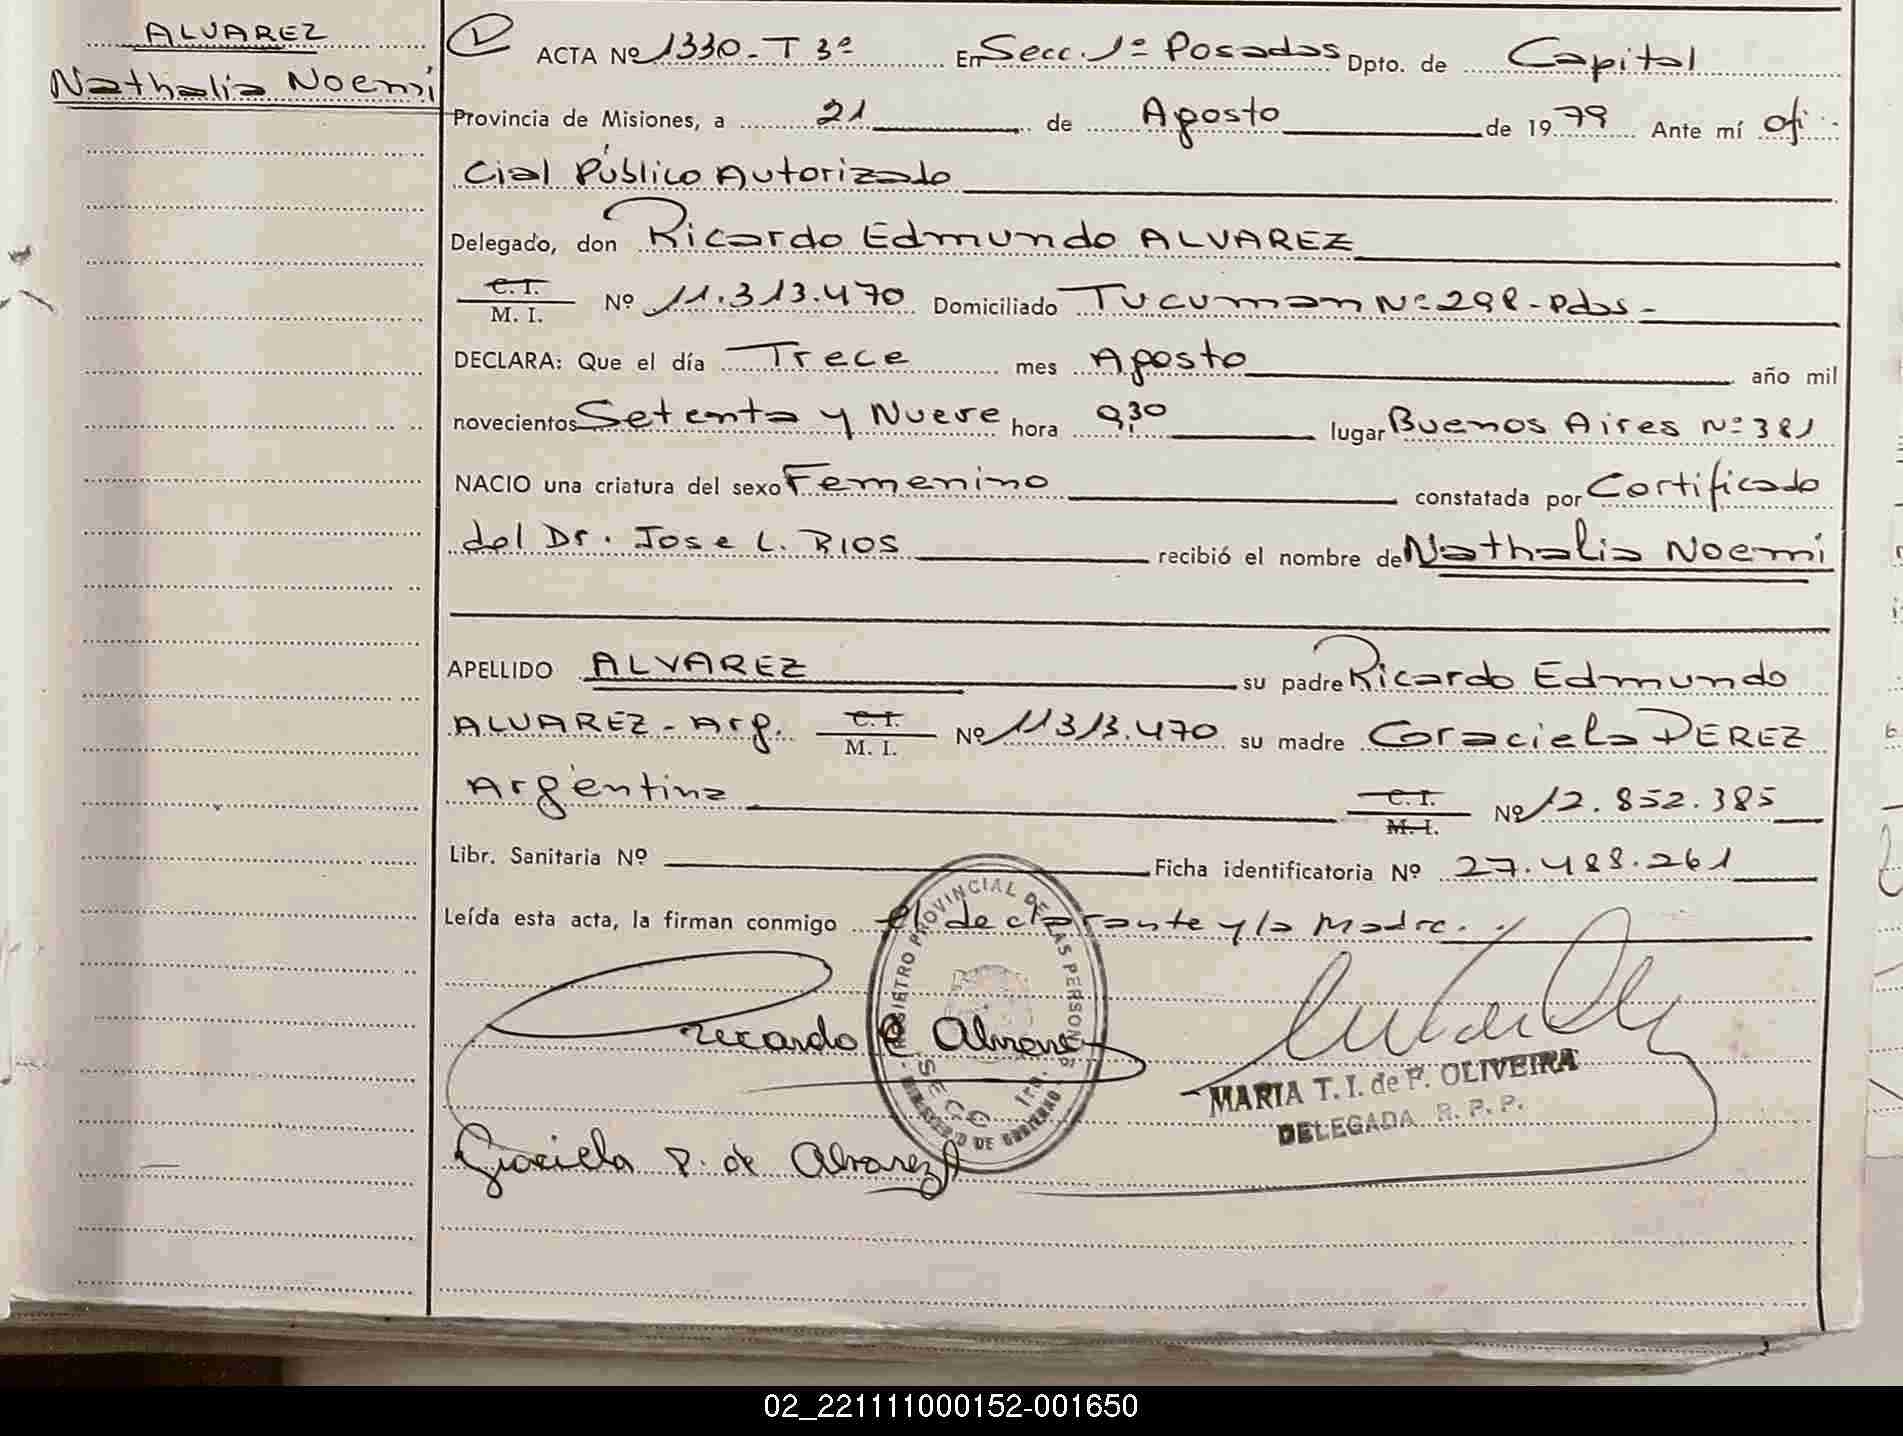 ALVAREZ
Nathalia Noemí
ACTA Nº 1330-T 3º En Secc. 1º Posadas Dpto. de Capital
Provincia de Misiones, a 21 de Agosto de 1979 Ante mí ofi-
cial Público Autorizado
Delegado, don Ricardo Edmundo ALVAREZ
C. I.
M. I. Nº 11.313.470 Domiciliado Tucuman Nº 298-Pdas-
DECLARA: Que el día Trece mes Agosto año mil
novecientos Setenta y Nueve hora 9,30 lugar Buenos Aires Nº 381
NACIO una criatura del sexo Femenino constatada por Certificado
del Dr. Jose L. RIOS recibió el nombre de Nathalia Noemí
APELLIDO ALVAREZ su padre Ricardo Edmundo
ALVAREZ-Arg. C. I.
M. I. Nº 11313.470 su madre Graciela PEREZ
Argentina C. I.
M. I. Nº 12.852.385
Libr. Sanitaria Nº Ficha identificatoria Nº 27.488.261
Leída esta acta, la firman conmigo el declarante y la Madre.
REGISTRO PROVINCIAL DE LAS PERSONAS
SECC 1ra.
MINISTERIO DE GOBIERNO
Ricardo E Alvarez
MARIA T. I. de P. OLIVEIRA
DELEGADA R. P. P.
Graciela P. de Alvarez
02_221111000152-001650